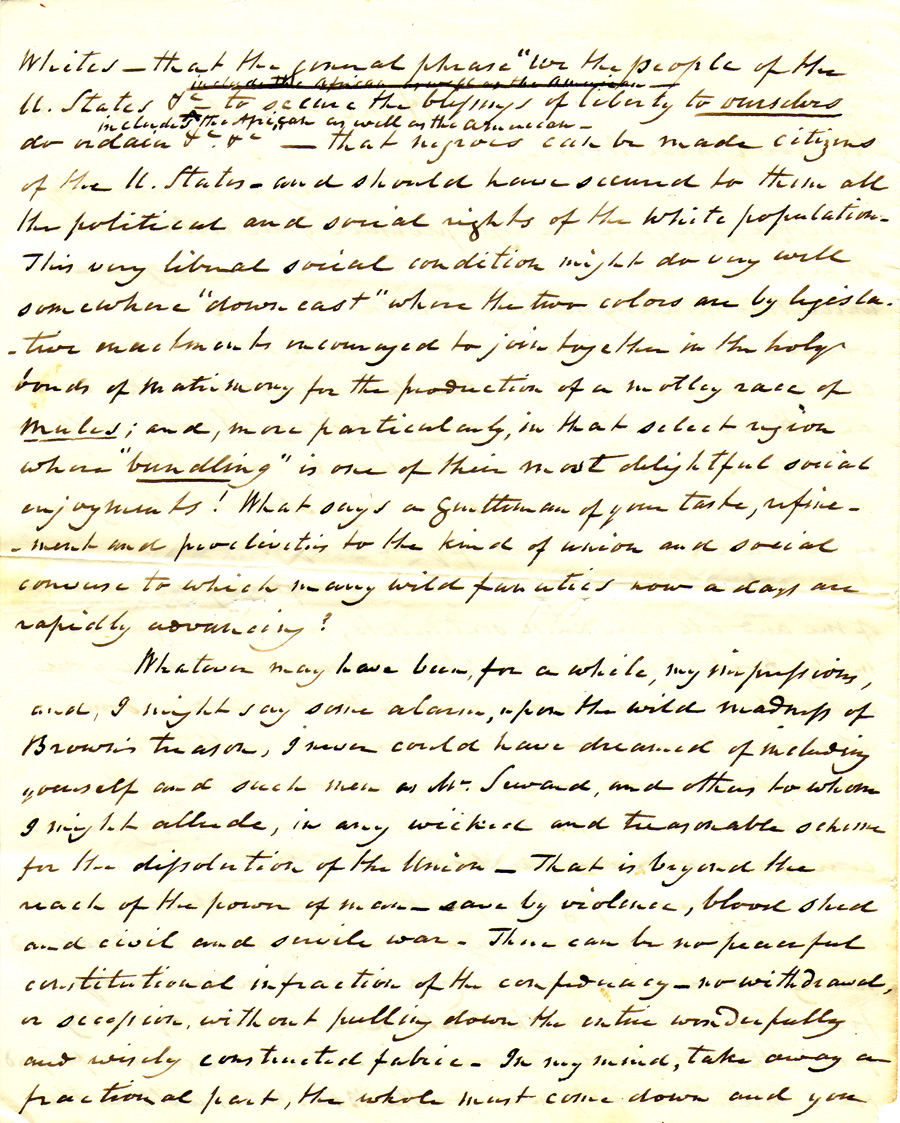 Whites – that the general phrase "We the people of the
include the African as well as the American –
U. States &c – to secure the blessings of liberty to ourselves
includes the African as well as the American –
do ordain &c. &c – that negroes can be made citizens
of the U. States – and should have secured to them all
the political and social rights of the white population –
This very liberal social condition might do very well
somewhere "down east" where the two colors are by legisla-
-tive enactments encouraged to join together in the holy
bonds of matrimony for the production of a motley race of
mules; and, more particularly, in that select region
where "bundling" is one of their most delightful social
enjoyments! What says a Gentleman of your taste, refine-
-ment and proclivities to the kind of union and social
converse to which many wild fanatics now a days are
rapidly advancing?
Whatever may have been, for a while, my impressions,
and, I might say some alarm, upon the wild madness of
Brown's treason, I never could have dreamed of including
yourself and such men as Mr. Seward, and others to whom
I might allude, in any wicked and treasonable scheme
for the dissolution of the Union – That is beyond the
reach of the power of man – save by violence, blood shed
and civil and servile war – There can be no peaceful
constitutional infraction of the confederacy – no withdrawal,
or secession, without pulling down the entire wonderfully
and wisely constructed fabric – In my mind, take away a
fractional part, the whole must come down and you